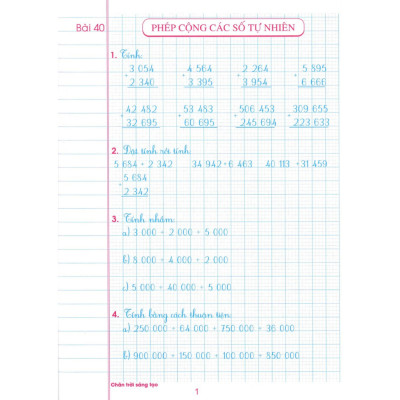 Bài 40
PHÉP CỘNG CÁC SỐ TỰ NHIÊN
1. Tính:
3 054 4 564 2 264 5 895
+ + + +
2 340 3 395 3 954 6 666
42 482 53 483 506 453 309 655
+ + + +
32 695 60 695 245 694 223 633
2. Đặt tính rồi tính:
5 684 + 2 342 34 942 + 6 463 40 113 + 31 459
5 684
+
2 342
3. Tính nhẩm:
a) 3 000 + 2 000 + 5 000
b) 8 000 + 4 000 + 2 000
c) 5 000 + 40 000 + 5 000
4. Tính bằng cách thuận tiện:
a) 250 000 + 64 000 + 750 000 + 36 000
b) 900 000 + 150 000 + 100 000 + 850 000
Chân trời sáng tạo
1